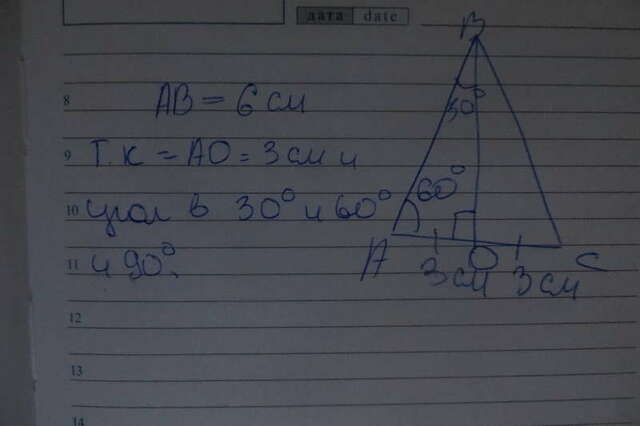 дата date
B
8 AB = 6 см
30°
9 Т.к = AO = 3 см и
60°
10 угол в 30° и 60°
11 и 90°.
A O C
3 см 3 см
12
13
14